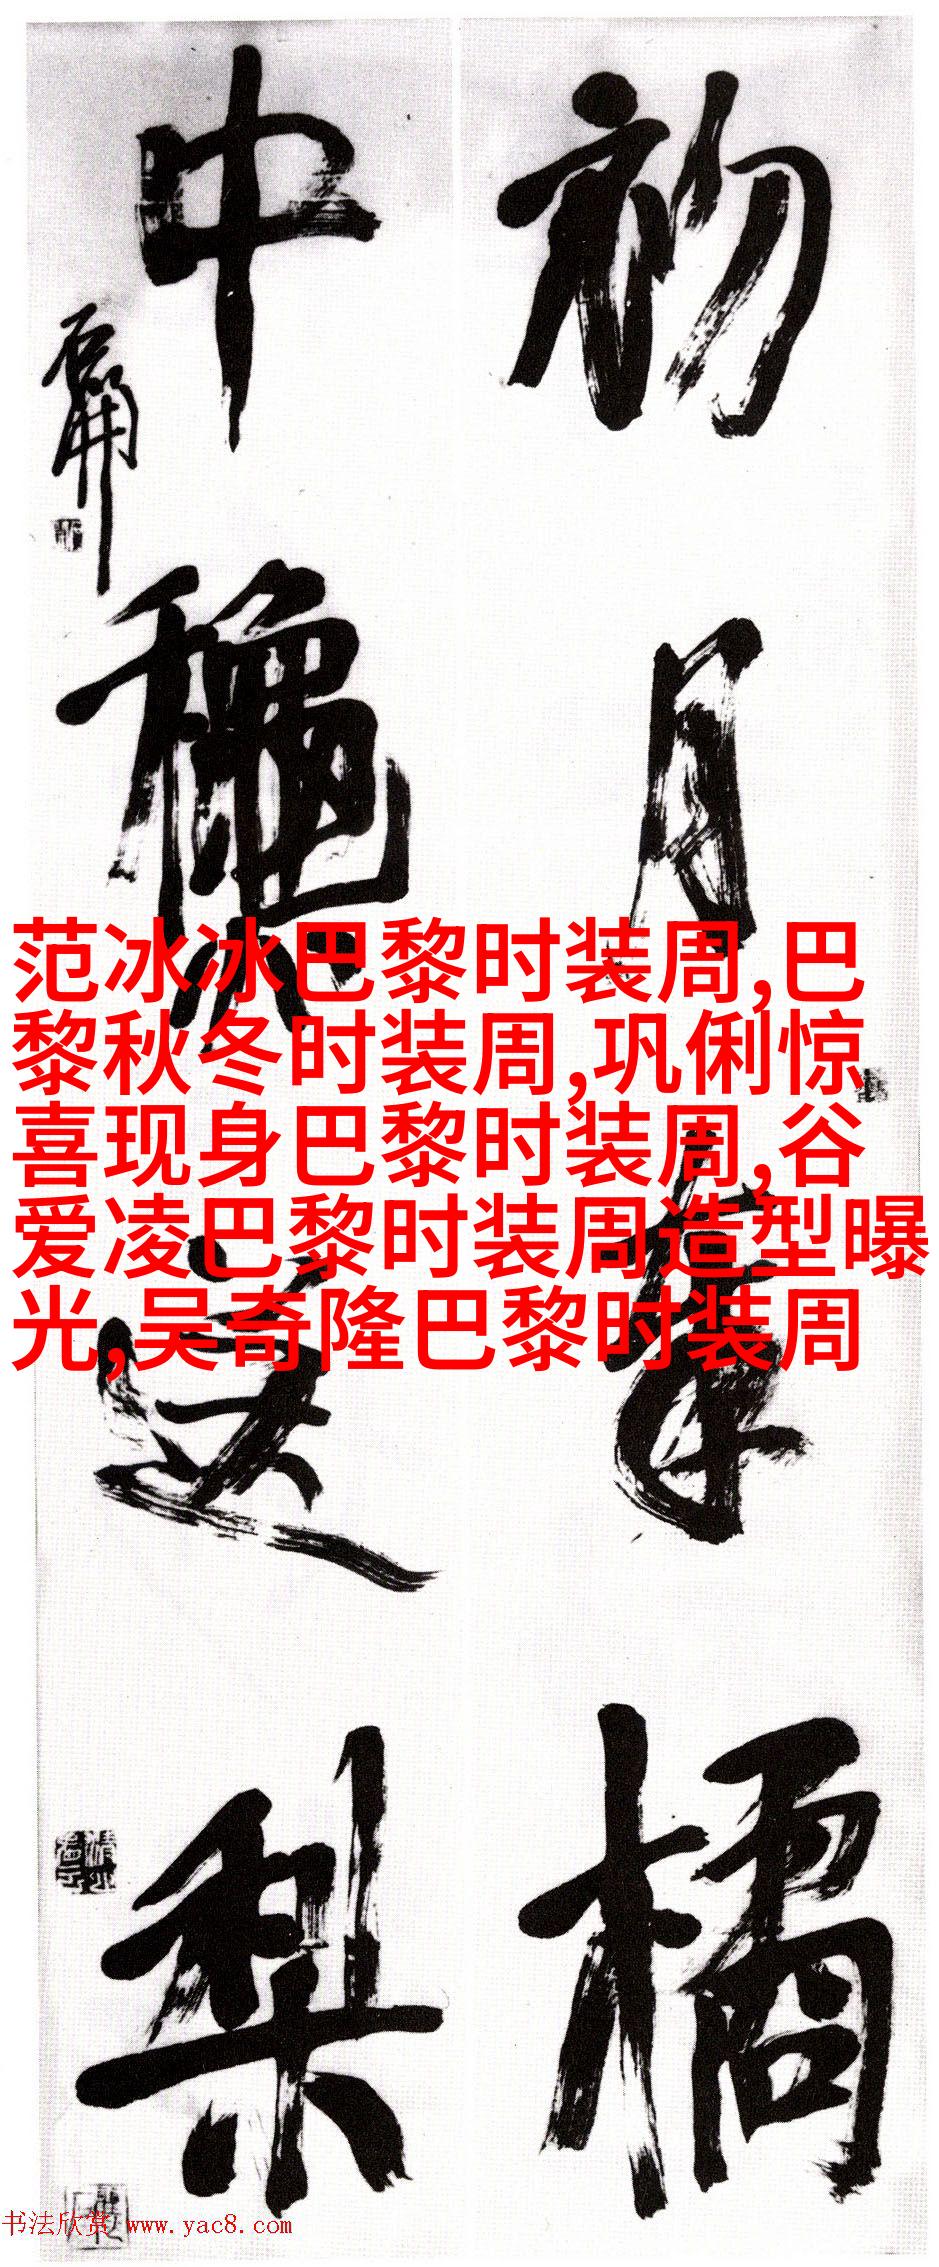 初月橘
中送梨
范冰冰巴黎时装周,巴
黎秋冬时装周,巩俐惊
喜现身巴黎时装周,谷
爱凌巴黎时装周造型曝
光,吴奇隆巴黎时装周
书法欣赏 www.yac8.com